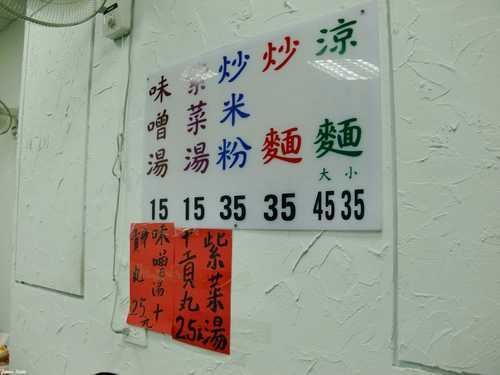 涼麵
大 小
45 35
炒麵
35
炒米粉
35
紫菜湯
15
味噌湯
15
紫菜湯
+貢丸
25元
味噌湯+
丸
25元